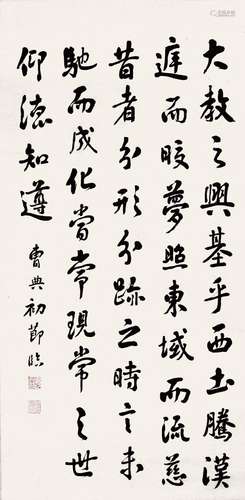 大教之興基乎西土騰漢
庭而皎夢照東域而流慈
昔者分形分跡之時言未
馳而成化當常現常之世
仰德知遵
曹典初節臨